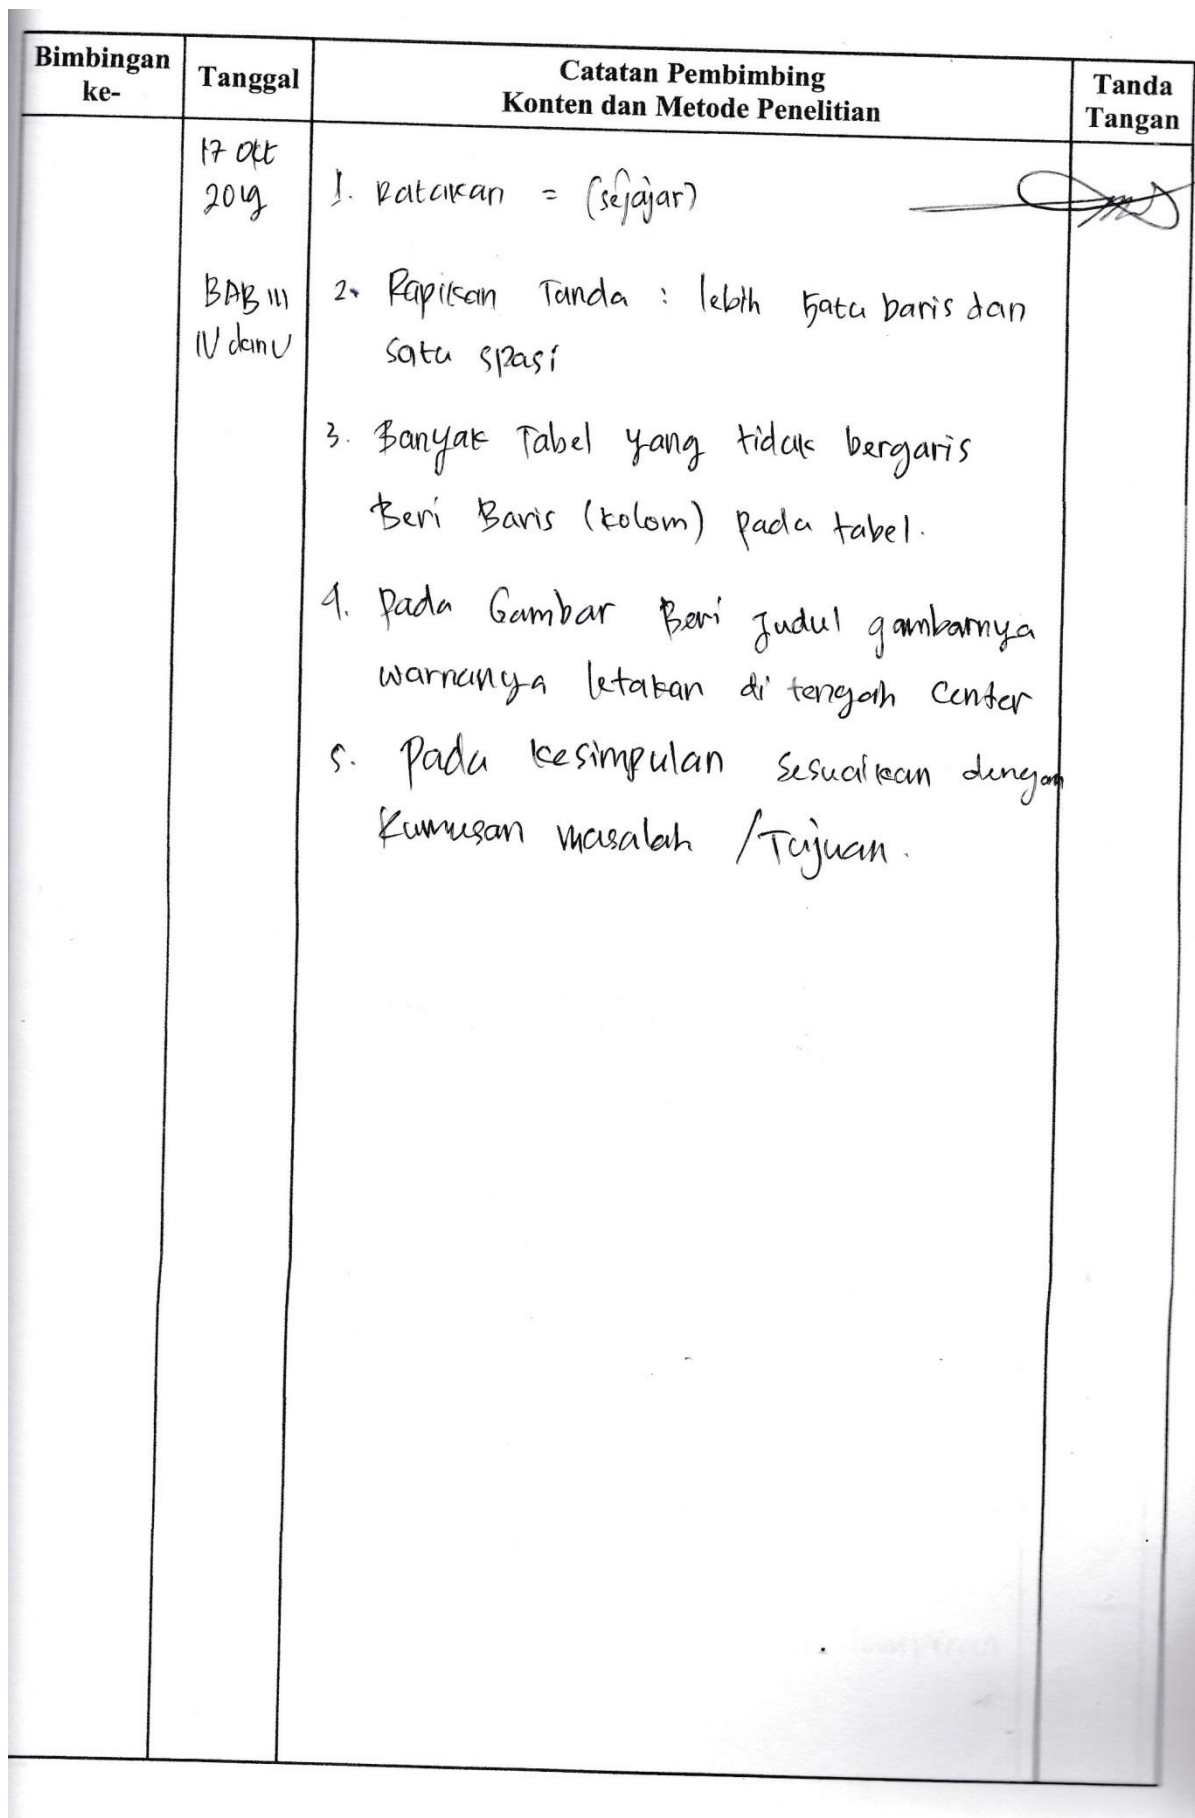 Bimbingan ke-
Tanggal
Catatan Pembimbing
Konten dan Metode Penelitian
Tanda Tangan
17 Okt
2019
BAB III
IV dan V
1. Ratakan = (sejajar)
2. Rapikan Tanda : lebih satu baris dan
satu spasi
3. Banyak Tabel yang tidak bergaris
Beri Baris (kolom) pada tabel.
4. Pada Gambar Beri Judul gambarnya
warnanya letakan di tengah Center
5. Pada kesimpulan sesuaikan dengan
Rumusan masalah / Tujuan.